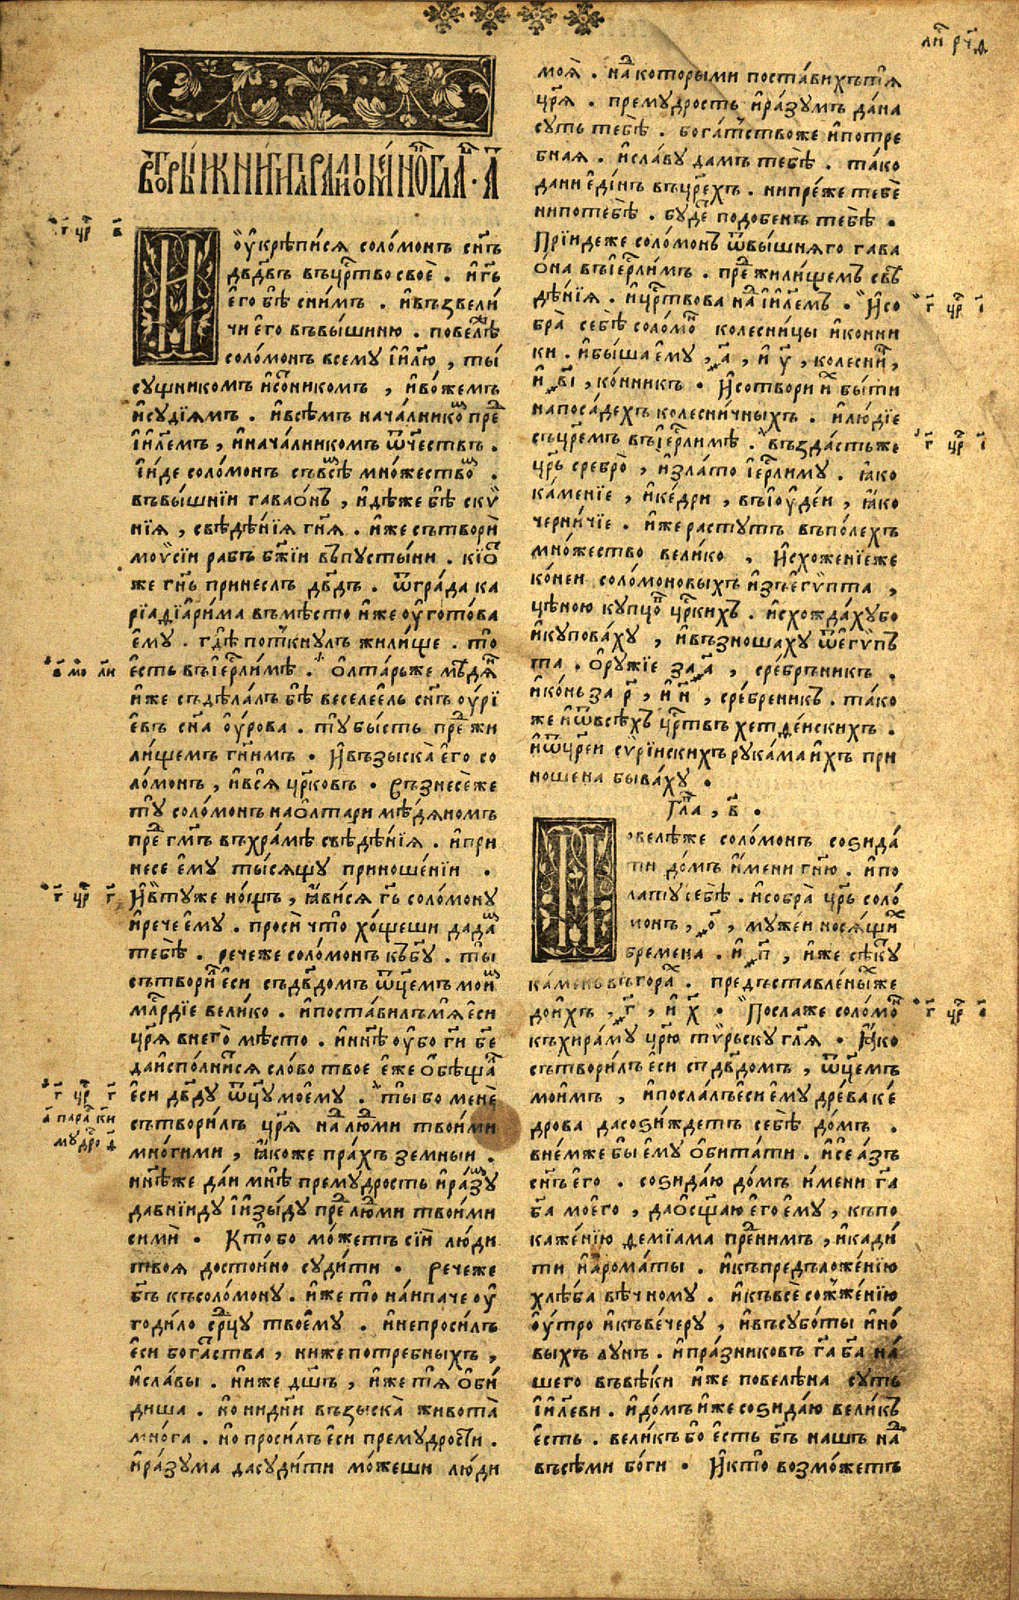 ли҃ рч҃д
вторыѧ книги паралипоменонъ гла҃ . а҃
г҃ цр҃ в҃
И оу҆крѣписѧ соломонъ сн҃ъ
дв҃двъ въцр҃тво своѐ . и҆ гь҃
е҆го бѣ сни́мъ . и҆възвели
чи е҆го въвышиню . повелѣ
соломонъ всему і҆и҃лю , ты
сущникомъ и҆со́тникомъ , и҆во́жемъ
и҆судїѧмъ . и҆всѣмъ нача́лникомъ пре
і҆и҃лемъ , и҆нача́лникомъ ѿч҃ествъ .
і҆и́де соло́монъ съвсѣ мно́жествомъ .
въвы́шнїи гаваѡ́нъ , и҆дѣ́же бѣ скѵ
нїѧ , свѣдѣ́нїѧ гн҃ѧ . и҆́же сътвори
моѵ̈си́и рабъ бж҃їи въпусты́ни . кїѡ
же гн҃ь принеслъ дв҃дъ . ѿгра́да ка
рїадїа́рима въмѣ́сто и҆́же оу҆гото́ва
е҆му̀ . гдѣ потъкнулъ жили́ще . то
е҆́сть въі҆ер҃ли́мѣ . О҆лта́рьже мѣдѧн
и҆́же съдѣлалъ бѣ веселее́ль сн҃ъ оу҆рі
е҆въ сн҃а оу҆́рова . ту бы́сть пре жи
лищемъ гн҃имъ . И҆възыска̀ е҆го̀ со
ло́монъ , и҆всѧ̀ цр҃ковъ . Възнесе́же
ту соломонъ наѻ҆лтари мѣ́дѧномъ
пре гм҃ъ въхра́мѣ свѣдѣ́нїѧ . и҆при
несе е҆му̀ ты́сѧщу приноше́нїи .
И҆втуже но́щъ , ꙗ҆ви́сѧ гь҃ соло́мону
и҆рече е҆му̀ . просѝ что хо́щеши да дамъ
тебѣ̀ . рече́же соло́монъ къбг҃у . ты̀
сътвори́лъ е҆сѝ съдв҃домъ ѿц҃емъ мои́мъ
мл҃рдїе вели́ко . и҆поста́вилъмѧ е҆си
цр҃ѧ внего̀ мѣ́сто . и҆ нн҃ѣ оу҆́бо ги҃ бе҃
даи҆спо́лнисѧ сло́во твоѐ е҆́же ѻ҆бѣща́лъ
е҆сѝ дв҃ду ѿц҃у моему̀ . ты̀ бо менѐ
сътвори́лъ цр҃ѧ на лю́ми твои́ми
мно́гими , ꙗ҆́коже пра́хъ земны́и .
и҆нн҃ѣже да́и мнѣ̀ прему́дрость и҆ра́зумъ
давнїиду і҆и҆зы́ду пре лю́ми твои́ми
си́ми . Кто̀ бо мо́жетъ сїи̑ лю́ди
твоѧ̀ досто́ино суди́ти . рече́же
бг҃ъ къ соло́мону . и҆́же то̀ наипа́че оу҆
годи́ло ср҃цу твоему̀ . и҆непроси́лъ
е҆сѝ бога́тства , ниже потре́бныхъ ,
и҆сла́вы . и҆ниже дш҃ъ , и҆́же тѧ̀ ѻ҆би́
диша . но нидни́ възыска̀ живота̀
мно́га . но проси́лъ е҆сѝ прему́дрости .
и҆ра́зума дасуди́ти мо́жеши лю́ди
в҃ мо л҃и
г҃ цр҃ г҃
г҃ цр҃ г҃
а҃ пара҃ к҃и
мудро д҃
моѧ̀ . на кото́рыми поста́вихътѧ
цр҃ѧ . прему́дрость и҆ра́зумъ да́на
су́ть тебѣ̀ . бога́тствоже и҆потре
бнаѧ . и҆сла́ву да́мъ тебѣ̀ . та́ко
дани е҆ди́нъ въцр҃ехъ . нипре́же тебѐ
нипотебѣ̀ . бу́де подо́бенъ тебѣ̀ .
Прїи́деже соломо́нъ ѿвы́шнѧго гава
о́на въі҆ер҃ли́мъ . пре жили́щемъ свѣ
дѣ́нїѧ . и҆цр҃твова на і҆и҃лемъ . И҆со
бра̀ себѣ̀ соло́монъ колесни́цы и҆ко́нни
ки . и҆бы́ша е҆му̀ , ҂а҃ , и҆ у҃ , колесни́ц ,
и҆ ҂в҃і , ко́нникъ . И҆сотвори и҆х бы́ти
напоса́дехъ колесни́чныхъ . и҆ лю́дїе
съцр҃емъ въі҆ер҃ли́мѣ . възда́стъже
цр҃ь сребро̀ , и҆зла́то і҆ер҃ли́му . ꙗ҆́ко
ка́менїе , и҆ке́дри , въі҆оу҆де́и , ꙗ҆́ко
черни́чїе . и҆́же расту́тъ въпо́лехъ
мно́жество вели́ко , И҆схоже́нїеже
ко́неи соломо́новыхъ и҆зъе҆гѵ́пта ,
цѣно́ю купцо́въ цр҃кихъ . и҆схожда́хубо
и҆купова́ху , и҆възноша́ху ѿе҆гѵ́пъ
та . Ѻ҆ру́жїе за ҂а҃ , сре́брьникъ .
и҆ко́нь за р҃ , и҆ н҃ , сре́бреникъ . та́ко
же и҆ѿвсѣхъ цр҃твъ хетде́искихъ .
и҆ѿцр҃еи сѵ́рїискихъ рука́ма и҆́хъ при
ноше́на быва́ху .
гла҃ , в҃ .
Повелѣ́же соло́монъ соѕида́
ти до́мъ и҆́мени гн҃ю . и҆ по
ла́ту себѣ̀ . и҆собра̀ цр҃ь соло́
монъ , ҂о҃ , муже́и носѧ́щих
бремена . и҆ ҂п҃ , и҆́же сѣку
ка́мень въгора́х . предъста́вленыхже
дои҆́хъ ҂г҃ , и҆ х҃ . Посла́же соло́монъ
къхира́му цр҃ю тѵ́рьску гл҃ѧ . Ꙗ҆́ко
сътвори́лъ е҆сѝ съдв҃домъ , ѿц҃емъ
мои́мъ , и҆посла́лъ е҆си ему̀ дре́ва ке́
дрова дасоѕи́ждетъ себѣ̀ до́мъ .
вне́мже бы е҆му̀ ѻ҆бита́ти . и҆се а́зъ
сн҃ъ е҆го̀ . соѕида́ю до́мъ и҆́мени га҃
ба҃ моего̀ , даѻ҆сщ҃а́ю е҆го̀ е҆му̀ , къпо
каже́нїю ѳемїа́ма пре ни́мъ , и҆кади́
ти и҆арома́ты . и҆къпредъложе́нїю
хлѣ́ба вѣ́чному . и҆къвсесожже́нїю
оу҆́тро и҆къве́черу , и҆въсубо́ты и҆но́
выхъ лу́нъ . и҆пра́зниковъ га҃ ба҃ на́
шего въвѣ́ки и҆́же повелѣ́на су́ть
і҆и҃леви . и҆до́мъ и҆́же соѕида́ю вели́къ
е҆́сть . вели́къ бо е҆́сть бг҃ъ на́шъ на
въсѣ́ми бо́ги . И҆кто̀ возмо́жетъ
г҃ цр҃ і҃
г҃ цр҃ і҃
г҃ цр҃ е҃